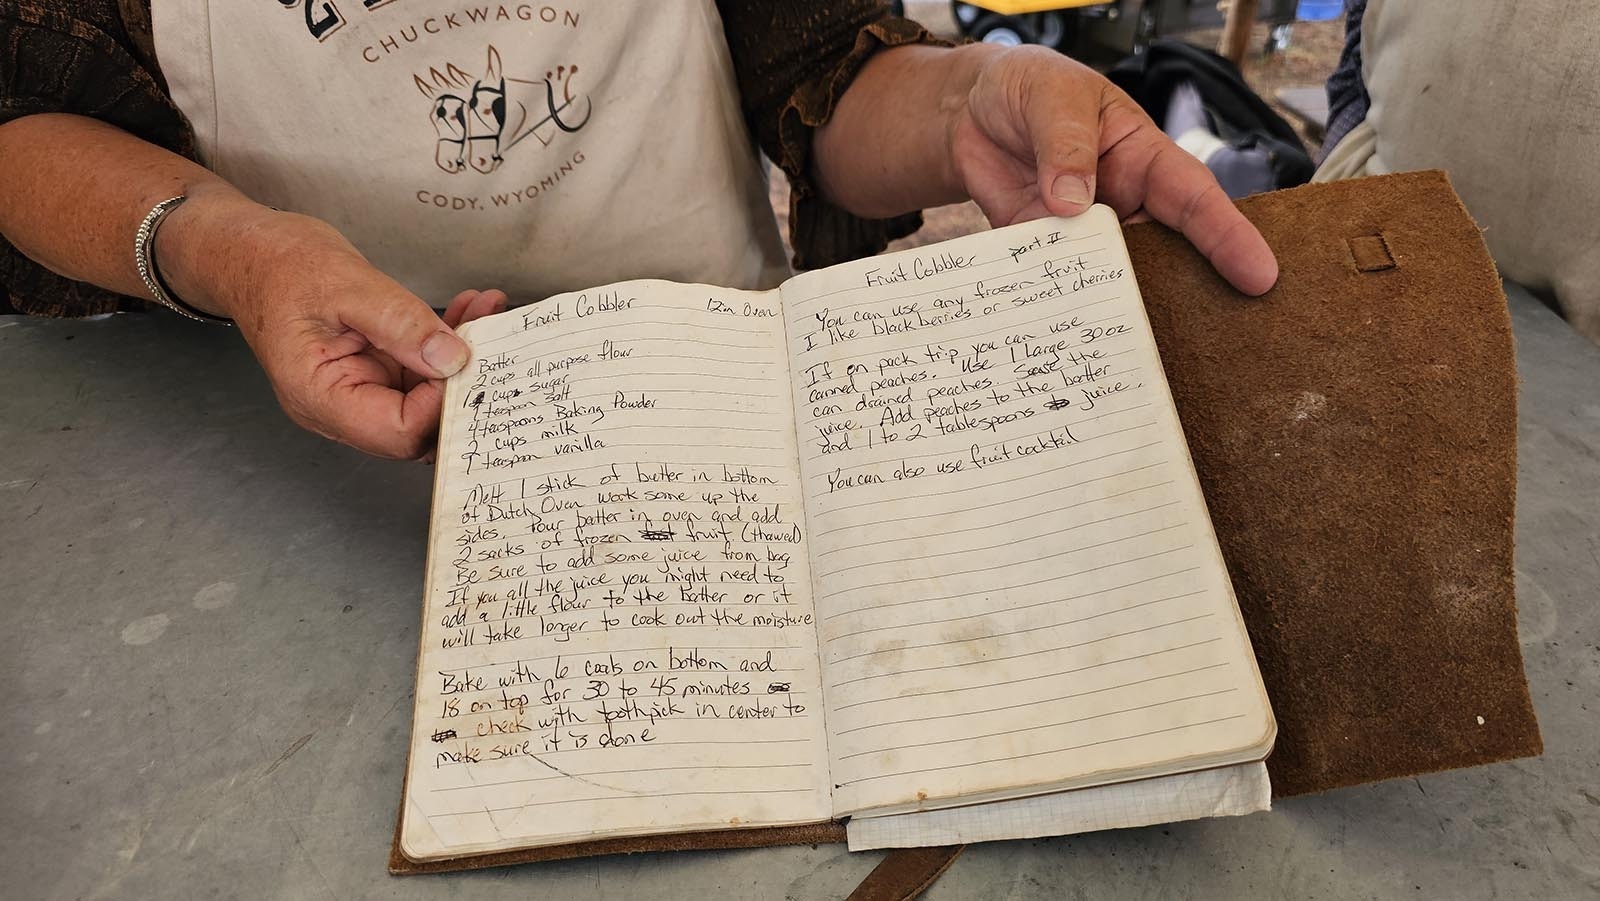 CHUCKWAGON
CODY, WYOMING
Fruit Cobbler 12in Oven
Batter
2 cups all purpose flour
1 cups sugar
1 teaspoon salt
4 teaspoons Baking Powder
2 cups milk
1 teaspoon vanilla
Melt 1 stick of butter in bottom
of Dutch Oven work some up the
sides. Pour batter in oven and add
2 sacks of frozen fruit (thawed)
Be sure to add some juice from bag
If you all the juice you might need to
add a little flour to the batter or it
will take longer to cook out the moisture
Bake with 6 coals on bottom and
18 on top for 30 to 45 minutes
check with toothpick in center to
make sure it is done
Fruit Cobbler part II
You can use any frozen fruit
I like blackberries or sweet cherries
If on pack trip you can use
canned peaches. Use 1 Large 30oz
can drained peaches. Save the
juice. Add peaches to the batter
and 1 to 2 tablespoons juice.
You can also use fruit cocktail